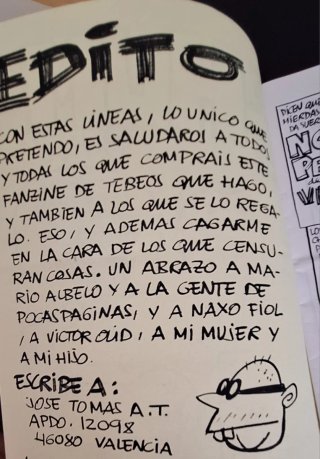 EDITO
CON ESTAS LÍNEAS, LO UNICO QUE
PRETENDO, ES SALUDAROS A TODOS
Y TODAS LOS QUE COMPRAIS ESTE
FANZINE DE TEBEOS QUE HAGO,
Y TAMBIEN A LOS QUE SE LO REGA-
LO. ESO, Y ADEMAS CAGARME
EN LA CARA DE LOS QUE CENSU-
RAN COSAS. UN ABRAZO A MA-
RIO ALBELO Y A LA GENTE DE
POCASPAGINAS, Y A NAXO FIOL
, A VICTOR OLID, A MI MUJER Y
A MI HIJO.
ESCRIBE A:
JOSE TOMAS A.T.
APDO. 12098
46080 VALENCIA
DICEN QUE
MIERDAS
DA SUER